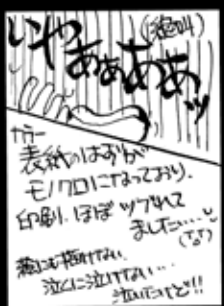 いやああああッ
カラー
表紙のはずが
モノクロになっており、
印刷、ほぼツブれて
ましたい…
泣くに泣けない…
泣いたけど!!